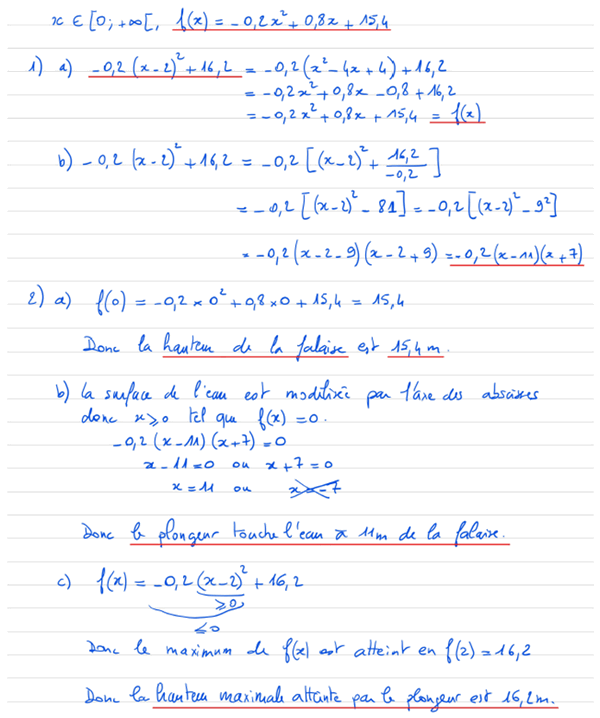 x ∈ [0; +∞[, f(x) = -0,2x² + 0,8x + 15,4
1) a) -0,2(x-2)² + 16,2 = -0,2(x² - 4x + 4) + 16,2
= -0,2x² + 0,8x - 0,8 + 16,2
= -0,2x² + 0,8x + 15,4 = f(x)
b) -0,2(x-2)² + 16,2 = -0,2[(x-2)² + 16,2/-0,2]
= -0,2[(x-2)² - 81] = -0,2[(x-2)² - 9²]
= -0,2(x-2-9)(x-2+9) = -0,2(x-11)(x+7)
2) a) f(0) = -0,2 × 0² + 0,8 × 0 + 15,4 = 15,4
Donc la hauteur de la falaise est 15,4 m.
b) la surface de l'eau est modélisée par l'axe des abscisses
donc x ⩾ 0 tel que f(x) = 0.
-0,2(x-11)(x+7) = 0
x - 11 = 0 ou x + 7 = 0
x = 11 ou x = -7
Donc le plongeur touche l'eau à 11m de la falaise.
c) f(x) = -0,2(x-2)² + 16,2
⩾0
⩽0
Donc le maximum de f(x) est atteint en f(2) = 16,2
Donc la hauteur maximale atteinte par le plongeur est 16,2m.